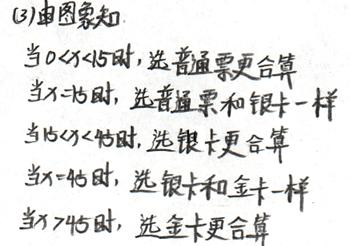 (3)由图象知
当0<x<15时,选普通票更合算
当x=15时,选普通票和银卡一样
当15<x<45时,选银卡更合算
当x=45时,选银卡和金卡一样
当x>45时,选金卡更合算